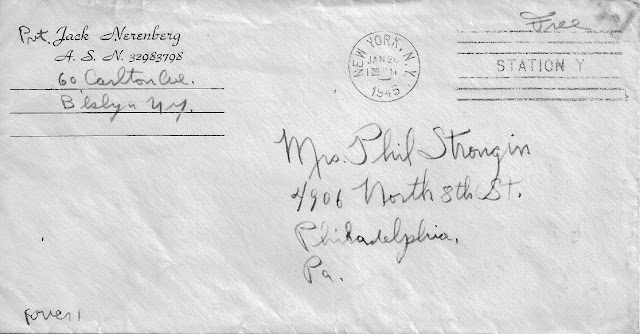 Pvt. Jack Nerenberg
A. S. N. 32983798
60 Carlton Ave.
B'klyn N.Y.
NEW YORK, N.Y.
JAN 26
1945
Free
STATION Y
Mrs. Phil Strongin
4906 North 8th St.
Philadelphia,
Pa.